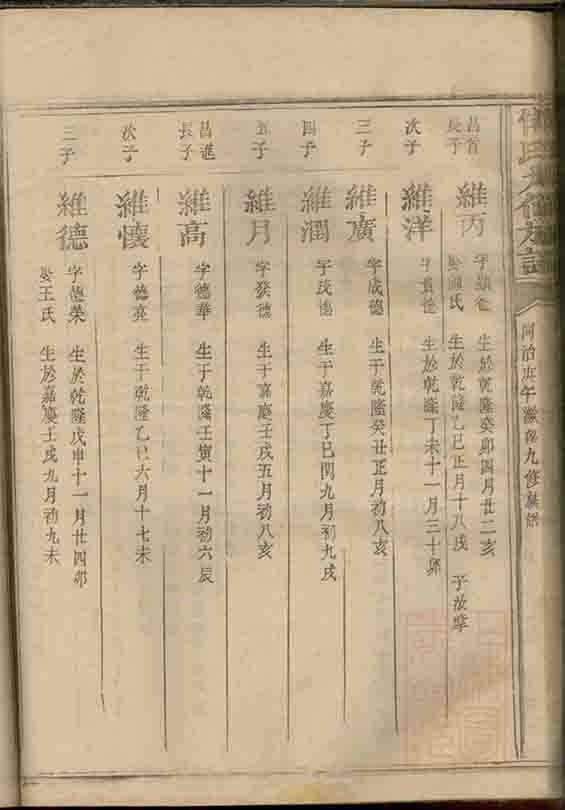 氏
同治庚午歲 九修族譜
昌首長子
維丙
字 德 生於乾隆癸卯四月廿二亥
娶 氏 生於乾隆乙巳正月十八戌 子汝
次子
維洋
字 德 生於乾隆丁未十一月三十卯
三子
維廣
字成德 生于乾隆癸丑正月初八亥
四子
維潤
字茂德 生于嘉慶丁巳閏九月初九戌
五子
維月
字癸德 生于嘉慶壬戌五月初八亥
昌進長子
維高
字德華 生于乾隆壬寅十一月初六辰
次子
維懷
字德亮 生于乾隆乙巳六月十七未
三子
維德
字德榮 生於乾隆戊申十一月廿四卯
娶王氏 生於嘉慶壬戌九月初九未